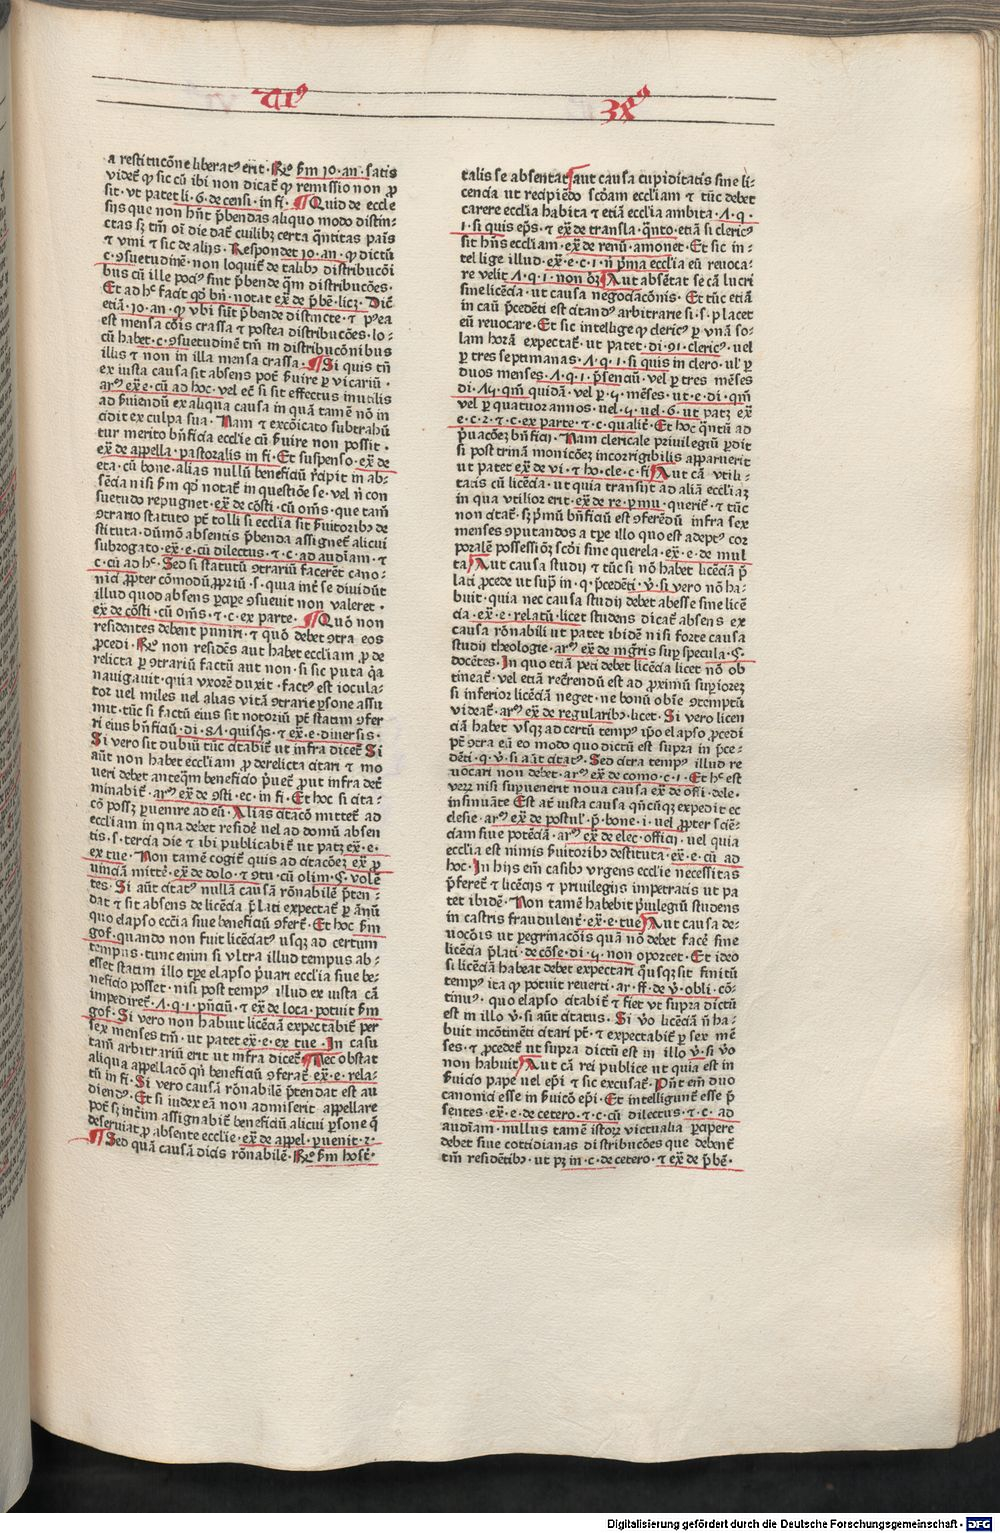 a restitucōne liberatꝰ erit · Rō ẜm io · an · satis
videt᷑ ꝙ sic cū ibi non dicat᷑ ꝙ remissio non ꝓ
sit · vt patet li · 6 · de censi · in fi · Quid de eccle
siis que non hn̄t p̄bendas aliquo modo distin-
ctas sꝫ tm̄ oī die dat᷑ cuilibꝫ certa q̄ntitas pais
⁊ vini ⁊ sic de aliis · Respondet io · an · ꝙ dictū
c · ꝯsuetudinē · non loquit᷑ de talibꝰ distribucōi
bus cū ille pociꝰ sint p̄bende q̄m distribucōes ·
Et ad hᶜ facit qḋ bn̄ · notat ex̄ de p̄be · licꝫ · Dic̄
etiā · io · an · ꝙ vbi sūt p̄bende distincte · ⁊ p̄ea
est mensa cōis crassa ⁊ postea distribucōes · lo-
cū habet · c · ꝯsuetudinē tm̄ in distribucōnibus
illis ⁊ non in illa mensa crassa · Si quis tn̄
ex iusta causa sit absens pōt ẜuire ꝑ vicariū ·
arꝰ ex̄ e · cū ad hoc · vel ec̄ si sit effectus inutilis
ad ẜuiendū ex aliqua causa in quā tamē nō in
cidit ex culpa sua · Nam ⁊ excōicato subtrahū
tur merito bn̄ficia ecclie cū ẜuire non possit ·
ex̄ de appella · pastoralis in fi · Et suspenso · ex̄ de
eta · cū bone · alias nullū beneficiū r̄cipit in ab-
sēcia nisi ẜm qḋ notat᷑ in questiōe se · vel n̄ con
suetudo repugnet · ex̄ de cōsti · cū om̄s · que tam̄
ꝯtrario statuto pt̄ tolli si ecclia sit ẜuitoribꝫ de
stituta · dūmō absentis p̄benda assignet᷑ alicui
subrogato · ex̄ · e · cū dilectus · ⁊ · c · ad audiam · ⁊
c · cū ad hᶜ · Sed si statutū ꝯtrariū facerēt cano-
nici ꝓpter cōmodū ꝓpriū · s · quia int᷑ se diuidūt
illud quod absens ꝑcipe ꝯsueuit non valeret ·
ex̄ de cōsti · cū om̄s · ⁊ · c · ex parte · Quō non
residentes debent puniri · ⁊ quō debet ꝯtra eos
ꝓcedi · Rō non residēs aut habet eccliam ꝓ de
relicta ꝑ ꝯtrariū factū aut non · si sic puta qꝛa
nauigauit · quia vxorē duxit · factꝰ est iocula-
tor uel miles uel alias vitā ꝯtrarie ꝑsone assu
mit · tūc si factū eius sit notoriū pt̄ statim ꝯfer
ri eius bn̄ficiū · di · 81 · quisqꝫ · ⁊ ex̄ · e · diuersis ·
Si vero sit dubiū tūc citabit᷑ ut infra dicet᷑ Si
aūt non habet eccliam ꝓ derelicta citari ⁊ mo
ueri debet anteq̄m beneficio p̄uet᷑ ꝓut infra det᷑
minabit᷑ · arꝰ ex̄ de ꝯsti · ec · in fi · Et hoc si cita-
cō possꝫ ꝑuenire ad eū · Alias citacō mittet᷑ ad
eccliam in qua debet residē uel ad domū absen
tis · s · tercia die ⁊ ibi publicabit᷑ ut patꝫ ex̄ · e ·
ex tue · Non tamē cogit᷑ quis ad citacōeꝫ ex ꝓ
uincia mitt᷑e · ex̄ de dolo · ⁊ ꝯtu · cū olim · ℭ · vole
tes · Si aūt citatꝰ nullā causā rōnabilē p̄ten-
dat ⁊ sit absens de licēcia p̄lati expectat᷑ ꝑ ānū
quo elapso eccīa siue beneficiū ꝯfert᷑ · Et hoc ẜm
gof · quando non fuit licēciatꝰ usqꝫ ad certum
tempus · tunc enim si vltra illud tempus ab-
esset statim illo tꝑe elapso p̄uari ecclīa siue be-
neficio posset · nisi post tempꝰ illud ex iusta cā
impediret᷑ · Λ · q · i · pn̄ciū · ⁊ ex̄ de loca · potuit ẜm
gof · Si vero non habuit licēciam expectabit᷑ per
sex menses tm̄ · ut patet ex̄ · e · ex tue · In casu
tam̄ arbitrariū erit ut infra dicet᷑ Nec obstat
aliqua appellacō qn̄ beneficiū ꝯferat᷑ ex̄ · e · rela-
tū in fi · Si vero causā rōnabilē p̄tendat est au
diendꝰ · Et si iudex eā non admiserit appellare
pōt sꝫ int᷑im assignabit᷑ beneficiū alicui ꝑsone q̄
deseruiat ꝓ absente ecclie · ex̄ de appel · ꝑuenit · 2 ·
Sed quā causā dicis rōnabilē · Rō ẜm host᷑ ·
talis se absentat aut causa cupiditatis sine li-
cencia ut recipiēdo scḋam eccliam ⁊ tūc debet
carere ecclīa habita ⁊ etiā ecclīa ambita · Λ · q ·
i · si quis ep̄s · ⁊ ex̄ de transla · q̄nto · etiā si clericꝰ
sit hn̄s eccliam · ex̄ de renū · amonet · Et sic in-
tellige illud · ex̄ · e · c · i · n̄ p̄ma ecclīa eū reuoca-
re velit Λ · q · i · non oꝫ · Aut absētat se cā lucri
sine licēcia · ut causa negociacōnis · Et tūc etiā
in caū p̄cedēti est citandꝰ arbitrarie si · s · placet
eū reuocare · Et sic intellige ꝙ clericꝰ ꝑ vnā so-
lam horā expectat᷑ · ut patet · di · 91 · clericꝰ · uel
ꝑ tres septimanas · Λ · q · i · si quis in clero · ul ꝑ
duos menses · Λ · q · i · p̄senciū · vel ꝑ tres mēses
di · Λ4 · qm̄ quidā · vel ꝑ · 4 · mēses · ut · e · di · qm̄
vel ꝑ quatuor annos · uel · 4 · uel · 6 · ut patꝫ ex̄
e · c · 2 · ⁊ · c · ex parte · ⁊ · c · qualit᷑ · Et hoc q̄ntū ad
p̄uacōeꝫ bn̄ficii · Nam clericale priuilegiū ꝑdit
si post trinā monicōeꝫ incorrigibilis apparuerit
ut patet ex̄ de vi · ⁊ ho · cle · c · fi · Aut cā vtili-
tatis cū licēcia · ut quia transiit ad aliā eccliaꝫ
in qua vtilior erit · ex̄ de re · ꝑmu · querit᷑ · ⁊ tūc
non citat᷑ · sꝫ p̄mū bn̄ficiū est ꝯferēdū infra sex
menses ꝯputandos a tꝑe illo quo est adeptꝰ cor
poralē possessiōꝫ scḋi sine querela · ex̄ · e · de mul
ta Aut causa studii ⁊ tūc si nō habet licēciā p̄
lati ꝓcede ut sup̄ in · q · p̄cedēti · v̄ · si vero nō ha-
buit · quia nec causa studii debet abesse sine licē
cia · ex̄ · e · relatū · licet studens dicat᷑ absens ex
causa rōnabili ut patet ibidē nisi forte causa
studii theologie · arꝰ ex̄ de mḡris suꝑ specula · ℭ ·
docētes · In quo etiā peti debet licēcia licet nō ob
tineat᷑ · vel etiā rec̄rendū est ad ꝓximū suꝑioreꝫ
si inferior licēciam neget · ne bonū obīe ꝯtemptū
videat᷑ · arꝰ ex̄ de regularibꝫ · licet · Si vero licen
ciā habet vsqꝫ ad certū tempꝰ ip̄o elapso ꝓcedi
pt̄ ꝯtra eū eo modo quo dictū est supra in p̄ce-
dēti · q · v̄ · si aūt citatꝰ · Sed citra tempꝰ illud re
uocari non debet · arꝰ ex̄ de como · c · i · Et hᶜ est
verꝫ nisi suꝑuenerit noua causa ex̄ de offi · dele ·
insinuāte Est at᷑ iusta causa qn̄cūqꝫ expedit ec
clesie · arꝰ ex̄ de postul · p̄ · bone · i · vel ꝓpter sciē-
ciam siue potēciā · arꝰ ex̄ de elec · officii · vel quia
ecclīa est nimis ẜuitoribꝫ destituta · ex̄ · e · cū ad
hoc · In hiis em̄ casibꝫ vrgens ecclie necessitas
p̄feret᷑ ⁊ licēciis ⁊ priuilegiis impetratis ut pa
tet ibidē · Non tamē habebit p̄iuilegiū studens
in castris fraudulent᷑ · ex̄ · e · tue Aut causa de-
uocōis ut peregrinacōis quā nō debet face᷑ sine
licēcia p̄lati · de cōse · di · 4 · non oportet · Et ideo
si licēciā habeat debet expectari q̄usqꝫ sit finitū
tempꝰ ita ꝙ potuit reuerti · ar · ff · de v̄ · obli · cō-
tinuꝰ · quo elapso citabit᷑ ⁊ fiet ut supra dictū
est in illo v̄ · si aūt citatus · Si v̄o licēciā n̄ ha-
buit incōtinēti citari pt᷑ · ⁊ expectabit᷑ ꝑ sex mē
ses · ⁊ ꝓcedet᷑ ut supra dictū est in illo v̄ · si v̄o
non habuit Aut cā rei publice ut quia est in
ẜuicio pape uel ep̄i ⁊ sic excusat᷑ · Pn̄t em̄ duo
canonici esse in ẜuicō ep̄i · Et intelligunt᷑ esse p̄
sentes · ex̄ · e · de cetero · ⁊ · c · cū dilectus · ⁊ · c · ad
audiam · nullus tamē istoꝝ victualia ꝑcipere
debet siue cottidianas distribucōes que debent᷑
tm̄ residētibꝫ · ut pꝫ in · c · de cetero · ⁊ ex̄ de p̄bē ·
Digitalisierung gefördert durch die Deutsche Forschungsgemeinschaft - DFG